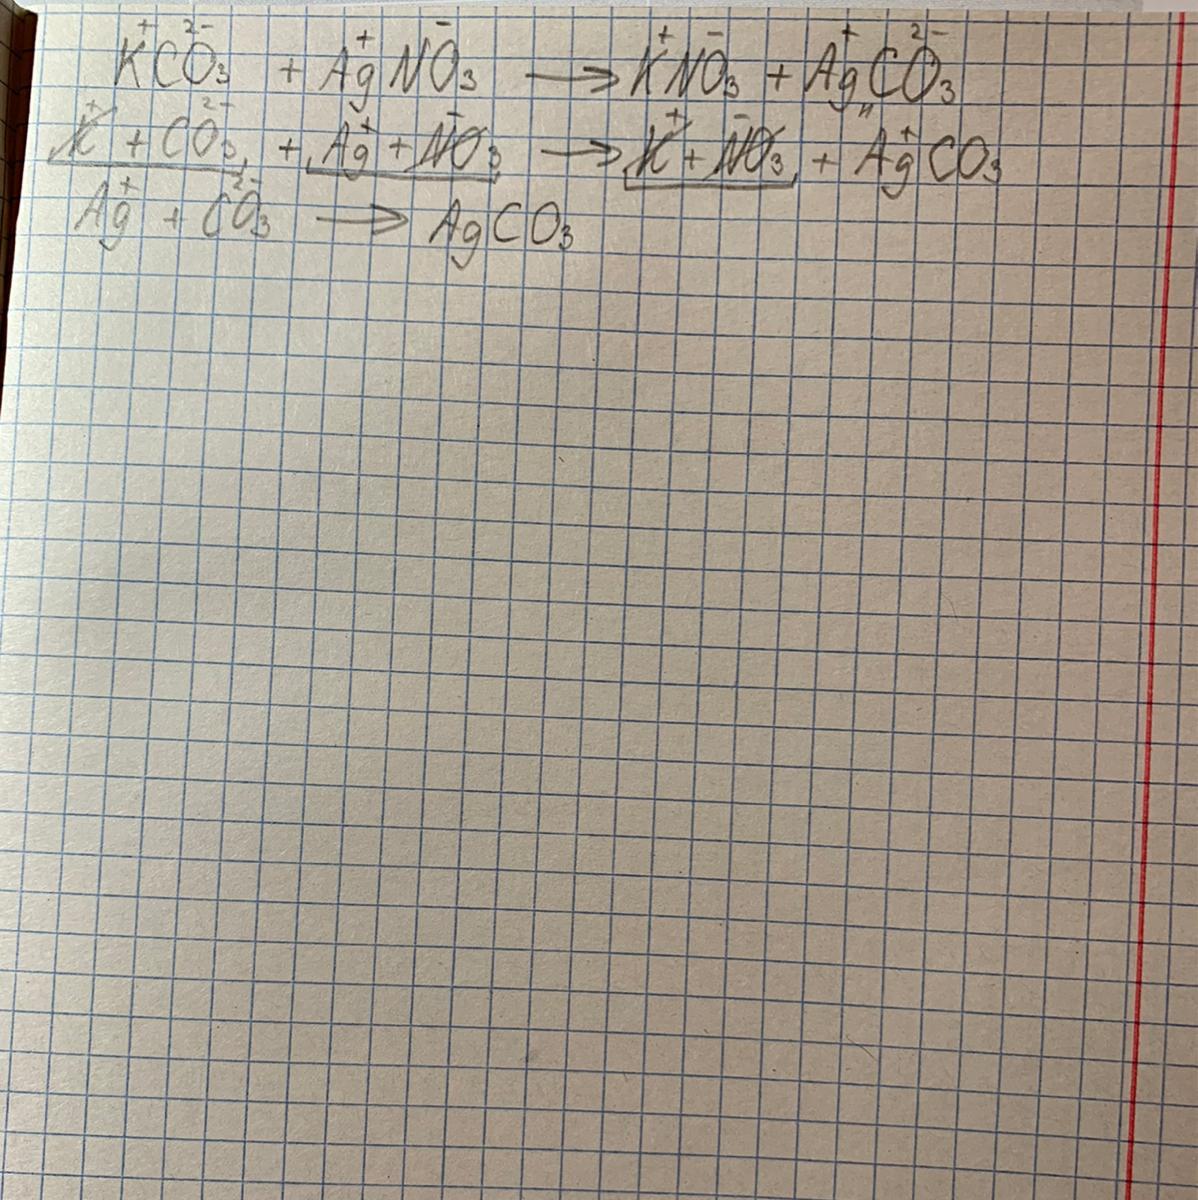 K⁺CO₃²⁻ + Ag⁺NO₃⁻ → K⁺NO₃⁻ + Ag⁺CO₃²⁻
K⁺ + CO₃²⁻ + Ag⁺ + NO₃⁻ → K⁺ + NO₃⁻ + Ag⁺CO₃
Ag⁺ + CO₃²⁻ → AgCO₃